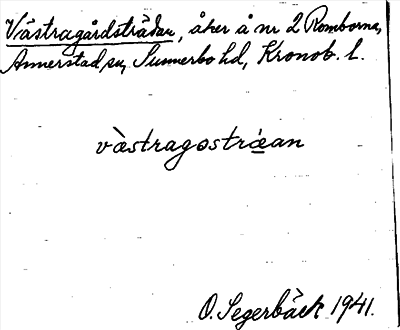 Västragårdsträdan, åker å nr 2 Romborna,
Annerstad sn, Sunnerbo hd, Kronob. l.
vàstragostræ̀an
O. Segerbäck 1941.